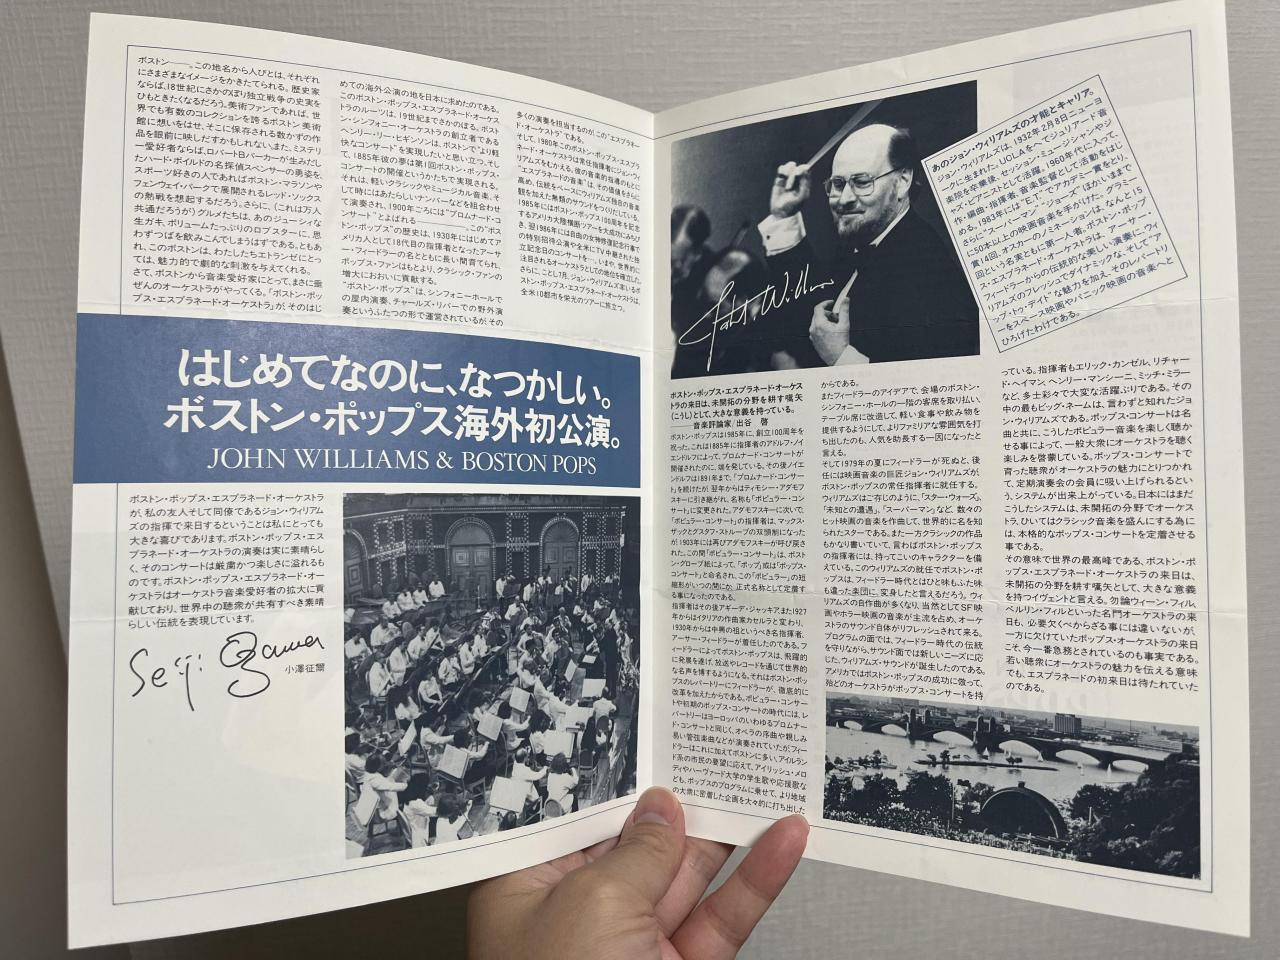 ボストン——。この地名から人びとは、それぞれ
にさまざまなイメージをかきたてられる。歴史家
ならば、18世紀にさかのぼり独立戦争の史実を
ひもときたくなるだろう。美術ファンであれば、世
界でも有数のコレクションを誇るボストン美術
館に想いをはせ、そこに保存される数かずの作
品を眼前に映しだすかもしれない。また、ミステリ
ー愛好者ならば、ロバート・B・パーカーが生みだし
たハード・ボイルドの名探偵スペンサーの勇姿を、
スポーツ好きの人であればボストン・マラソンや
フェンウェイ・パークで展開されるレッド・ソックス
の熱戦を想起するだろう。さらに、(これは万人
共通だろうが)グルメたちは、あのジューシィな
生ガキ、ボリュームたっぷりのロブスターに、思
わずつばを飲みこんでしまうはずである。ともあ
れ、このボストンは、わたしたちエトランゼにとっ
ては、魅力的で劇的な刺激を与えてくれる。
さて、ボストンから音楽愛好家にとって、まさに垂
ぜんのオーケストラがやってくる。「ボストン・ポッ
プス・エスプラネード・オーケストラ」が、そのはじ
めての海外公演の地を日本に求めたのである。
このボストン・ポップス・エスプラネード・オーケス
トラのルーツは、19世紀までさかのぼる。ボスト
ン・シンフォニー・オーケストラの創立者である
ヘンリー・リー・ヒギンソンは、ボストンで“より軽
快なコンサート”を実現したいと思い立つ。そし
て、1885年彼の夢は第1回ボストン・ポップス・
コンサートの開催というかたちで実現される。
それは、軽いクラシックやミュージカル音楽、そ
して時にはあたらしいナンバーなどを組合わせ
て演奏され、1900年ごろには“プロムナード・コ
ンサート”とよばれる———。この“ボス
トン・ポップス”の歴史は、1930年にはじめてア
メリカ人として18代目の指揮者となったアーサ
ー・フィードラーの名とともに長い間育てられ、
ポップス・ファンはもとより、クラシック・ファンの
増大において貢献する。
“ボストン・ポップス”は、シンフォニーホールで
の屋内演奏、チャールズ・リバーでの野外演
奏というふたつの形で運営されているが、その
多くの演奏を担当するのが、この“エスプラネー
ド・オーケストラ”である。
そして、1980年このボストン・ポップス・エスプラ
ネード・オーケストラは常任指揮者にジョン・ウィ
リアムズをむかえる。彼の音楽的指導のもとに
“エスプラネードの音楽”は、その価値をさらに
高め、伝統をベースにウィリアムズ独自の音楽
観を加えた無類のサウンドをつくりだしている。
1985年にはボストン・ポップス100周年を記念
するアメリカ大陸横断ツアーを大成功にみちび
き、翌1986年には自由の女神修復記念行事で
の特別招待公演や全米にTV中継された独
立記念日のコンサートを…、いまや、世界的に
注目されるオーケストラとしての地位を確立した。
さらに、ことし7月、ジョン・ウィリアムズ率いるボ
ストン・ポップス・エスプラネード・オーケストラは、
全米10都市を栄光のツアーに旅立つ。
はじめてなのに、なつかしい。
ボストン・ポップス海外初公演。
JOHN WILLIAMS & BOSTON POPS
ボストン・ポップス・エスプラネード・オーケストラ
が、私の友人そして同僚であるジョン・ウィリアム
ズの指揮で来日するということは私にとっても
大きな喜びであります。ボストン・ポップス・エス
プラネード・オーケストラの演奏は実に素晴らし
く、そのコンサートは厳粛かつ楽しさに溢れるも
のです。ボストン・ポップス・エスプラネード・オー
ケストラはオーケストラ音楽愛好者の拡大に貢
献しており、世界中の聴衆が共有すべき素晴
らしい伝統を表現しています。
Seiji Ozawa
小澤征爾
John Williams
あのジョン・ウィリアムズの才能とキャリア。
ジョン・ウィリアムズは、1932年2月8日ニューヨ
ークに生まれた。UCLAをへてジュリアード音
楽院を卒業後、セッション・ミュージシャンやジ
ャズ・ピアニストとして活躍。1960年代に入って、
作・編曲・指揮者、音楽監督として活動をはじ
める。1983年には“E.T.”でアカデミー賞をとり、
さらに“スーパーマン”“ジョーズ”ほかいままで
に50本以上の映画音楽を手がけた。グラミー
賞14回、オスカーのノミネーションは、なんと15
回という名実ともに第一人者。ボストン・ポップ
ス・エスプラネード・オーケストラは、アーサー・
フィードラーからの伝統的な美しい演奏に、ウィ
リアムズのフレッシュでダイナミックな、そして“ア
ップ・トゥ・デイト”な魅力を加え、そのレパートリ
ーをスペース映画やパニック映画の音楽へと
ひろげたわけである。
ボストン・ポップス・エスプラネード・オーケス
トラの来日は、未開拓の分野を耕す嚆矢
(こうし)として、大きな意義を持っている。
——音楽評論家/出谷 啓
ボストン・ポップスは1985年に、創立100周年を
祝った。これは1885年に指揮者のアドルフ・ノイ
エンドルフによって、プロムナード・コンサートが
開催されたのに、端を発している。その後ノイエ
ンドルフは1891年まで、「プロムナード・コンサー
ト」を続けたが、翌年からはティモシー・アダモフ
スキーに引き継がれ、名称も「ポピュラー・コン
サート」に変更された。アダモフスキーに次いで、
「ポピュラー・コンサート」の指揮者は、マックス・
ザックとグスタフ・ストルーブの双頭制になった
が、1903年には再びアダモフスキーが呼び戻さ
れた。この間「ポピュラー・コンサート」は、ボスト
ン・グローブ紙によって、「ポップ」或は「ポップス・
コンサート」と命名され、この「ポピュラー」の短
縮形がいつの間にか、正式名称として定着す
る事になったのである。
指揮者はその後アギーデ・ジャッキア、また1927
年からはイタリアの作曲家カセルラと変わり、
1930年からは中興の祖というべき名指揮者、
アーサー・フィードラーが着任したのである。フィ
ードラーによってボストン・ポップスは、飛躍的
に発展を遂げ、放送やレコードを通じて世界的
な名声を博するようになる。それはボストン・ポッ
プスのレパートリーにフィードラーが、徹底的に
改革を加えたからである。ポピュラー・コンサー
トや初期のポップス・コンサートの時代には、レ
パートリーはヨーロッパのいわゆるプロムナー
ド・コンサートと同じく、オペラの序曲や親しみ
易い管弦楽曲などが演奏されていたが、フィー
ドラーはこれに加えてボストンに多い、アイルラン
ド系の市民の要望に応えて、アイリッシュ・メロ
ディやハーヴァード大学の学生歌や応援歌な
ども、ポップスのプログラムに乗せて、より地域
の大衆に密着した企画を大々的に打ち出した
からである。
またフィードラーのアイデアで、会場のボストン・
シンフォニー・ホールの一階の客席を取り払い、
テーブル席に改造して、軽い食事や飲み物を
提供するようにして、よりファミリアな雰囲気を打
ち出したのも、人気を助長する一因になったと
言える。
そして1979年の夏にフィードラーが死ぬと、後
任には映画音楽の巨匠ジョン・ウィリアムズが、
ボストン・ポップスの常任指揮者に就任する。
ウィリアムズはご存じのように、「スター・ウォーズ」、
「未知との遭遇」、「スーパーマン」など、数々の
ヒット映画の音楽を作曲して、世界的に名を知
られたスターである。また一方クラシックの作品
もかなり書いていて、言わばボストン・ポップス
の指揮者には、持ってこいのキャラクターを備
えている。このウィリアムズの就任でボストン・ポ
ップスは、フィードラー時代とはひと味もふた味
も違った楽団に、変身したと言えるだろう。ウィ
リアムズの自作曲が多くなり、当然としてSF映
画やホラー映画の音楽が主流を占め、オーケ
ストラのサウンド自体がリフレッシュされて来る。
プログラムの面では、フィードラー時代の伝統
を守りながら、サウンド面では新しいニーズに応
じた、ウィリアムズ・サウンドが誕生したのである。
アメリカではボストン・ポップスの成功に倣って、
殆どのオーケストラがポップス・コンサートを持
っている。指揮者もエリック・カンゼル、リチャー
ド・ヘイマン、ヘンリー・マンシーニ、ミッチ・ミラー
など、多士彩々で大変な活躍ぶりである。その
中の最もビッグ・ネームは、言わずと知れたジョ
ン・ウィリアムズである。ポップス・コンサートは名
曲と共に、こうしたポピュラー音楽を楽しく聴か
せる事によって、一般大衆にオーケストラを聴く
楽しみを啓蒙している。ポップス・コンサートで
育った聴衆がオーケストラの魅力にとりつかれ
て、定期演奏会の会員に吸い上げられるとい
う、システムが出来上がっている。日本にはまだ
こうしたシステムは、未開拓の分野でオーケス
トラ、ひいてはクラシック音楽を盛んにする為に
は、本格的なポップス・コンサートを定着させる
事である。
その意味で世界の最高峰である、ボストン・ポ
ップス・エスプラネード・オーケストラの来日は、
未開拓の分野を耕す嚆矢として、大きな意義
を持つイヴェントと言える。勿論ウィーン・フィル、
ベルリン・フィルといった名門オーケストラの来
日も、必要欠くべからざる事には違いないが、
一方に欠けていたポップス・オーケストラの来日
こそ、今一番急務とされているのも事実である。
若い聴衆にオーケストラの魅力を伝える意味
でも、エスプラネードの初来日は待たれていた
のである。